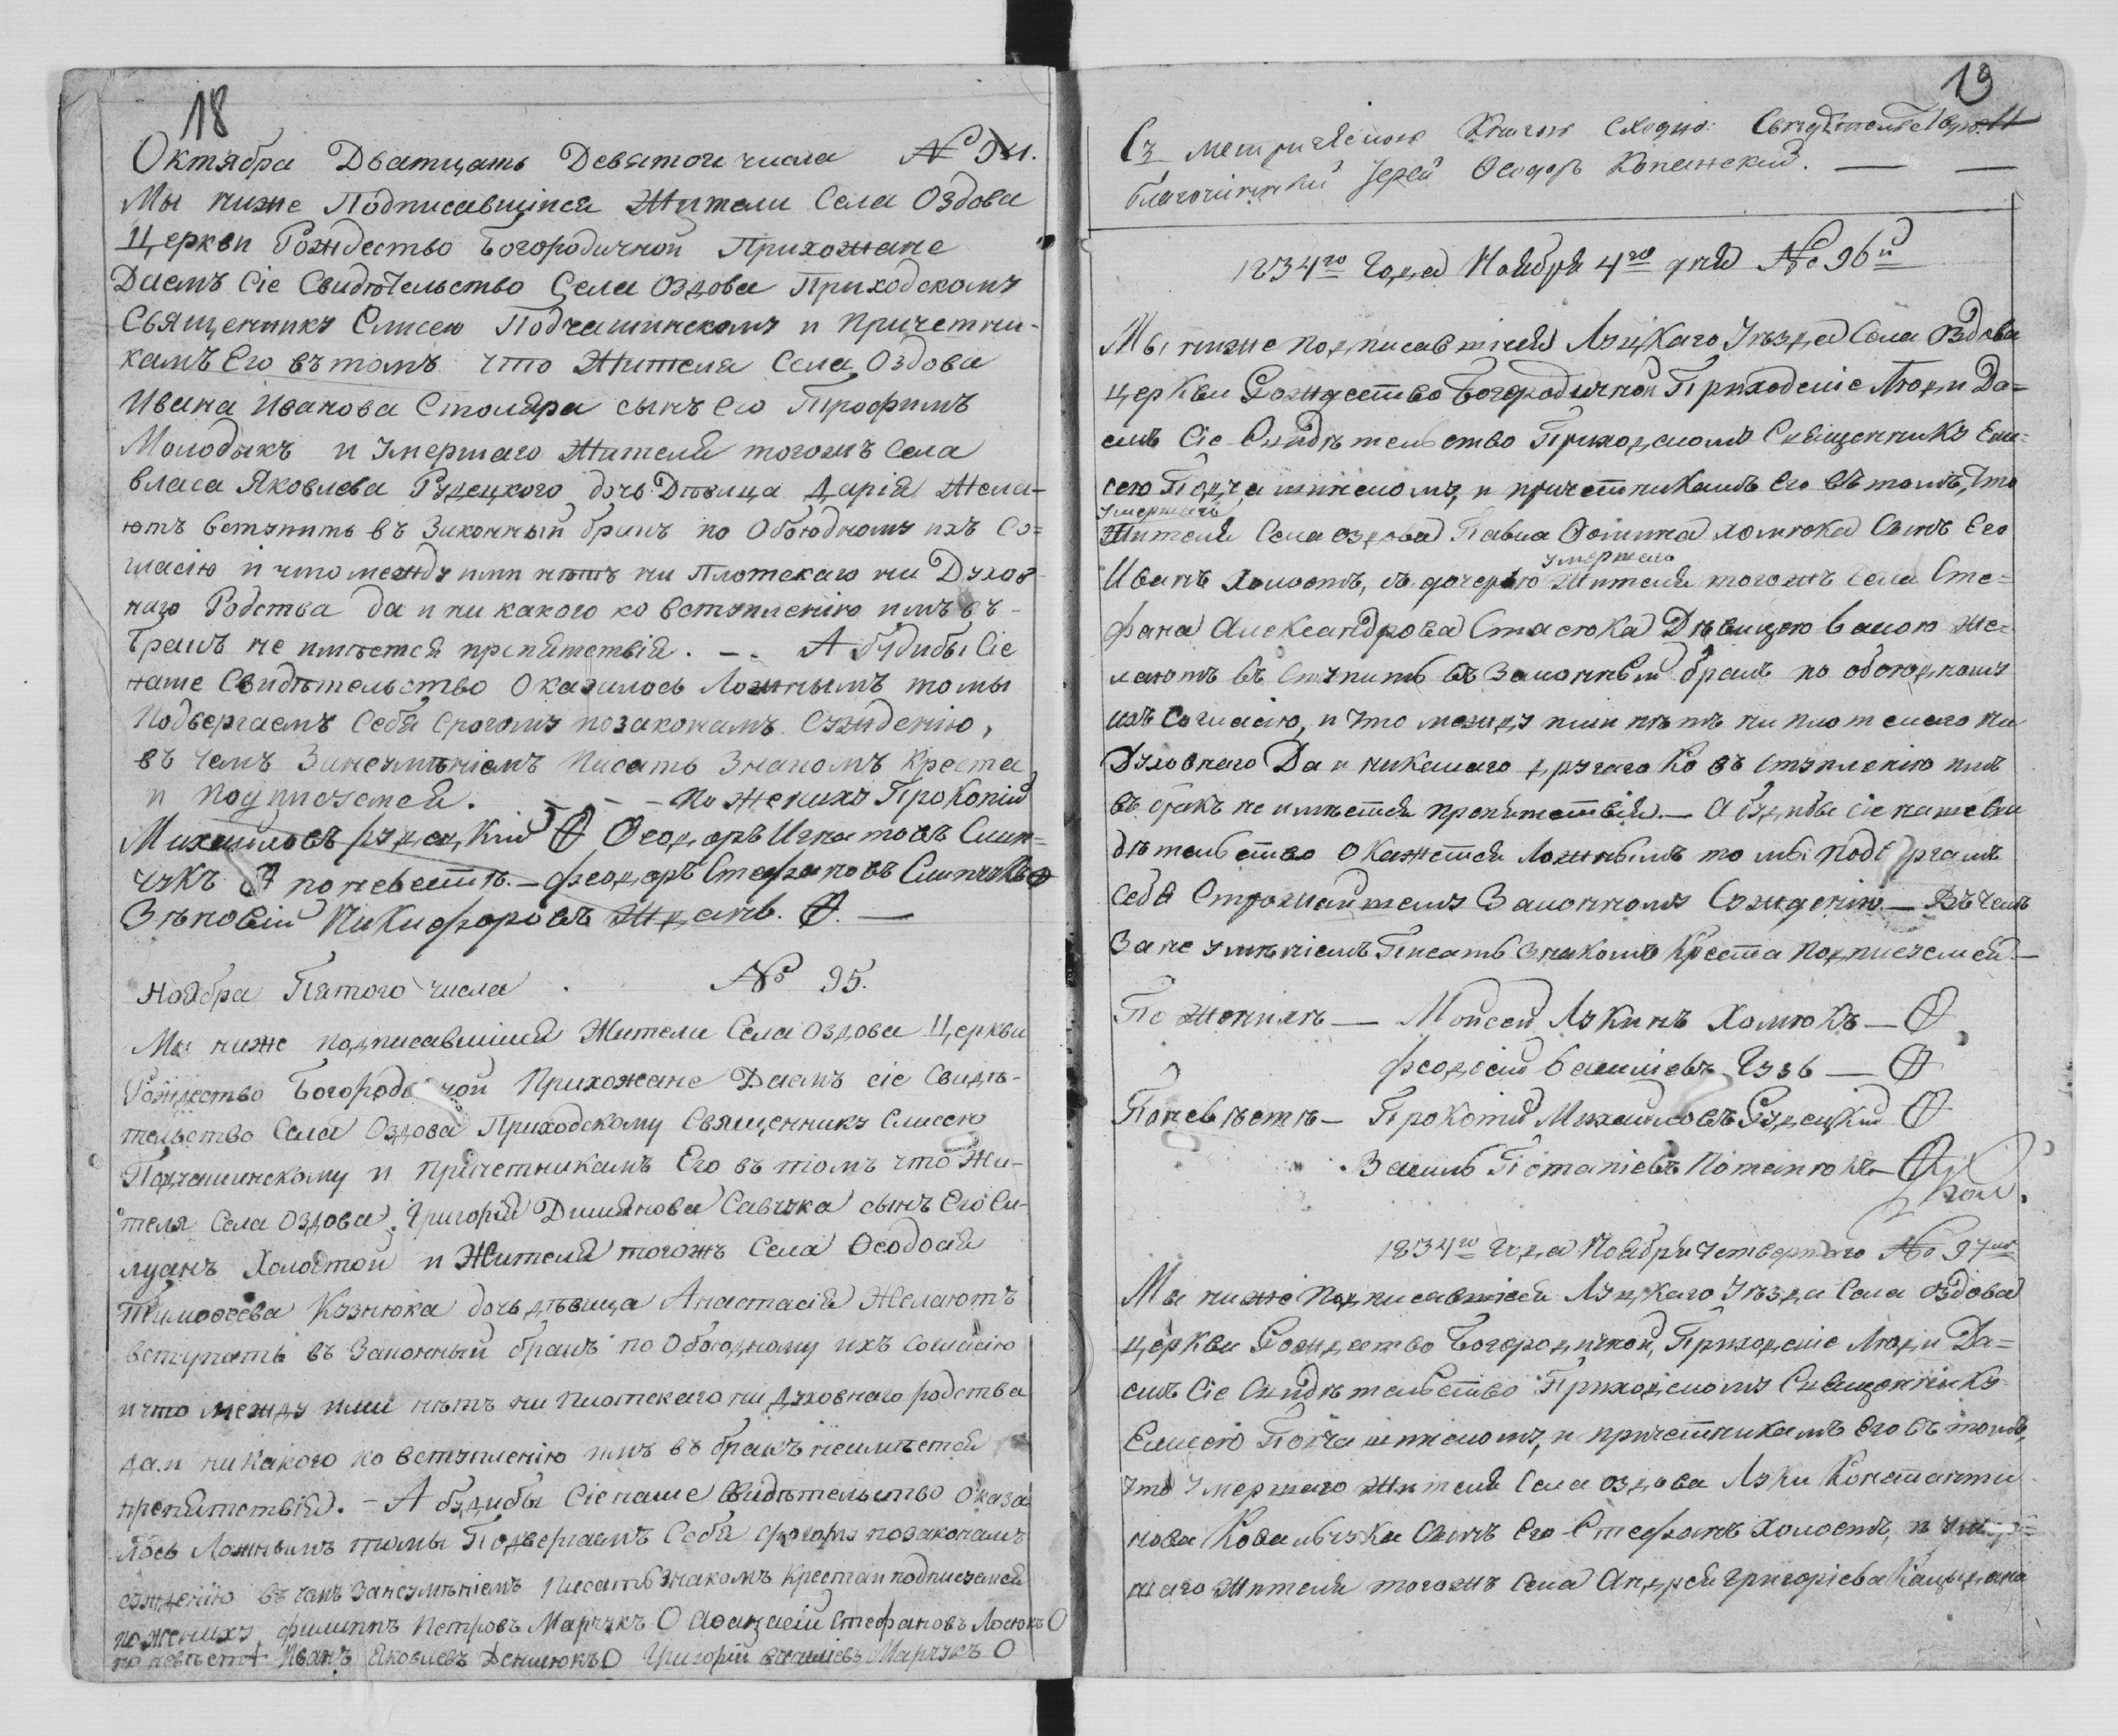 18
Октября Дватцать Девятого числа № 94.
Мы ниже Подписавшiися Жители Села Оздова
Церкви Рождество Богородичной Прихожане
Даемъ Сiе Свидѣтельство Села Оздова Приходскому
Священнику Елисею Подчашинскому и Причетни-
камъ Его въ томъ что Жителя Села Оздова
Ивана Иванова Столяра сынъ его Трофимъ
Молодыкъ и Умершаго Жителя тогожъ Села
Власа Яковлева Рудецкого дочь Дѣвица Дарiя Жела-
ютъ Вступить въ Законный бракъ по Обоюдному ихъ Со=
гласiю и что между ими нѣтъ ни Плотскаго ни Духов
наго Родства да и ни какого ко вступленiю имъ въ-
бракъ не имѣется препятствiя. -. А будибы Сiе
наше Свидѣтельство Оказалось Ложнымъ то мы
Подвергаемъ Себя Срогому позаконамъ Сужденiю,
въ чемъ Занеумѣнiемъ Писать Знакомъ Креста
и подписуемся. - - - По Жениху Прокопiй
Михайловъ Рудецкiй Ѳеодоръ Игнатовъ Слип-
чукъ по невестѣ. - Феодоръ Стефановъ Слипчукъ
Зѣновiй Никифоровъ Жданъ. —
Ноября Пятого числа . № 95.
Мы ниже подписавшiися Жители Села Оздова Церкви
Рождество Богородичной Прихожане Даемъ сiе Свидѣ-
тельство Села Оздова Приходскому Священнику Елисею
Подчашинскому и Причетникамъ Его въ томъ что Жи-
теля Села Оздова Григорiя Дмиянова Савчука сынъ Его Си-
луанъ Холостой и Жителя тогожъ Села Ѳеодосiя
Тимоѳеева Кузнюка дочь дѣвица Анастасiя Желаютъ
вступать въ Законный бракъ по Обоюдному ихъ Согласiю
и что между ими нѣтъ ни плотскаго ни духовнаго родства
да и ни какого ко вступленiю имъ въ бракъ неимѣется
препятствiя. - А будибы Сiе наше Свидѣтельство Оказа
лось Ложнымъ то мы Подвергаемъ Себя срогому позаконамъ
сужденiю въ чемъ Занеумѣнiемъ Писать Знакомъ Креста и подписуемся
по жениху Филиппъ Петровъ Марчукъ Аѳанасiй Стефановъ Лосюкъ
по невѣстѣ Иванъ Яковлевъ Денисюкъ Григорiй Василiевъ Марчукъ
19
Съ метрическою Книгою Сходно: Свидѣтельствую
благочинный Iерей Ѳеодоръ Копанский. — —
1834го Года Ноября 4го дня № 96й
Мы ниже подписавшiися Луцкаго Уѣзда Села Оздова
церкви Рождество Богородичной Приходскiе Люди Да=
емъ Сiе Свидѣтельство Приходскому Священнику Ели-
сею Подчашинскому, и причетникамъ Его въ томъ, что
Умершаго
Жителя Села Оздова Павла Ѳомина Хомюка Сынъ Его
умершаго
Иванъ Холостъ, съ дочерью Жителя тогожъ Села Сте=
фана Александрова Стасюка Дѣвицею Васою же=
лаютъ въ Ступить въ Законный бракъ по обоюдному
ихъ Согласiю, и что между ими нѣтъ ни плотскаго ни
Духовнаго Да и никакаго другаго Ко въ ступленiю имъ
въ бракъ не имѣется препятствiя. — А будибы сiе наше Сви
дѣтельство Окажется Ложнымъ то мы подвергаемъ
Себя Строжайшему Законному Сужденiю. — Въ чемъ
За не умѣнiемъ Писать Знакомъ Креста Подписуемся. —
По женихѣ — Мойсей Лукинъ Хомюкъ —
Феодосiй Василiевъ Гузь —
По невѣстѣ — Прокопiй Михайловъ Рудецкiй
Василь Потапiевъ Потапюкъ —
1834го Года Ноября Четвертаго № 97ый
Мы ниже Подписавшiися Луцкаго Уѣзда Села Оздова
церкви Рождество Богородичной, Приходскiе Люди Да=
емъ Сiе Свидѣтельство Приходскому Священнику
Елисею Подчашинскому, и причетникамъ Его въ томъ,
что Умершаго Жителя Села Оздова Луки Константи
нова Ковальчука Сынъ Его Стефанъ Холостъ, и умер=
шаго жителя тогожъ Села Андрея Григорiева